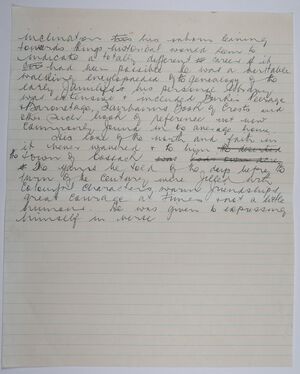 inclination his inborn leaning
towards things historical would seem to
indicate a totally different career if it
had been possible. He was a veritable
walking encyclopaedia of the genealogy of the
early families, his personal library
was extensive & included Burkes Peerage
& Baronetage, Fairbairns Book of Crests and
other such book of reference not now
commonly found in the average home.
His love of the north and faith in
it never wavered & to him
the Town of
The yarns he told of the days before the
turn of the Century were filled with
colourful characters, warm friendships,
great courage at times & not a little
humour. He was given to expressing
himself in verse